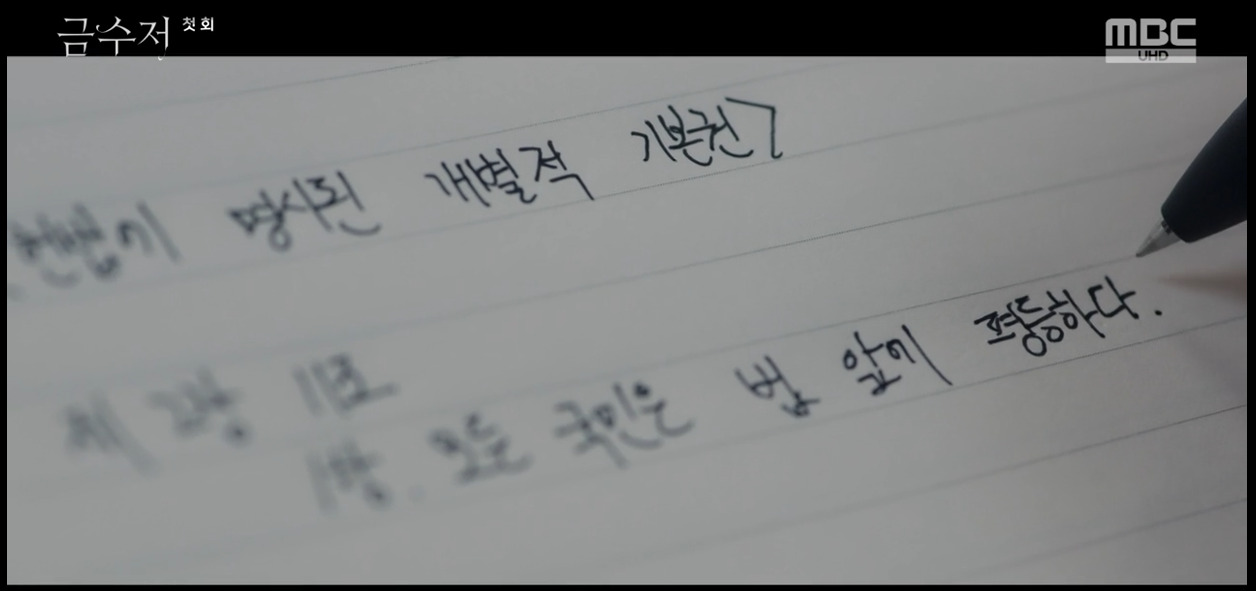 금수저 첫회
MBC
UHD
헌법에 명시된 개별적 기본권]
제 2장 11조
1항. 모든 국민은 법 앞에 평등하다.